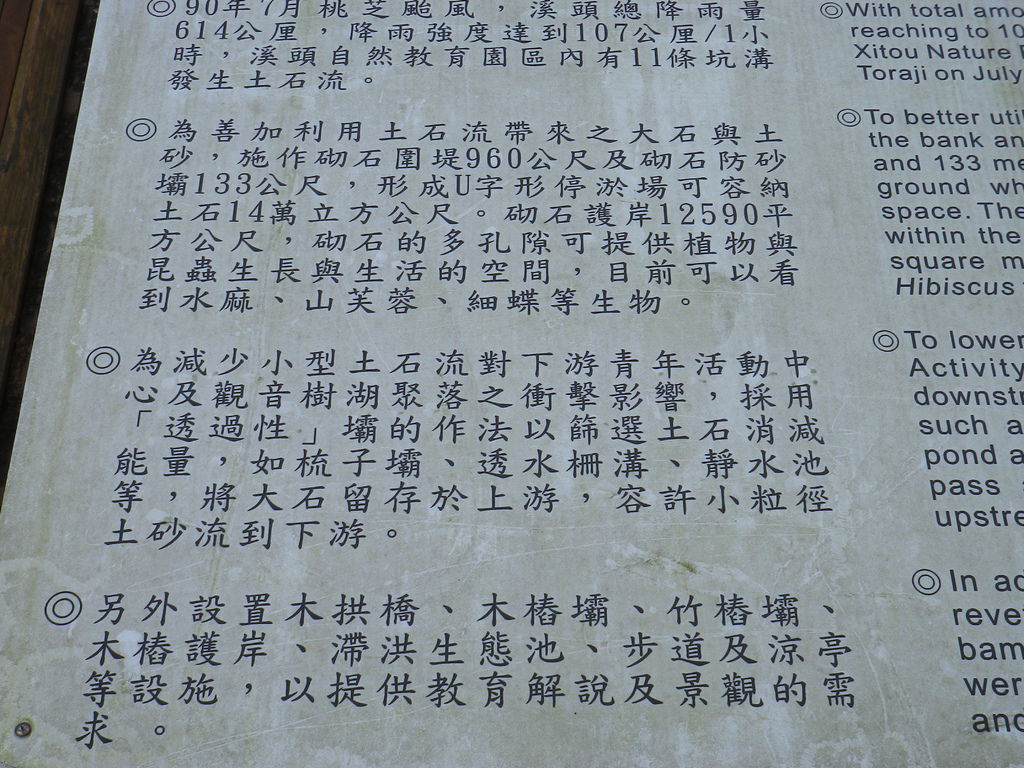 ◎90年7月桃芝颱風，溪頭總降雨量
614公厘，降雨強度達到107公厘/1小
時，溪頭自然教育園區內有11條坑溝
發生土石流。
◎為善加利用土石流帶來之大石與土
砂，施作砌石圍堤960公尺及砌石防砂
壩133公尺，形成U字形停淤場可容納
土石14萬立方公尺。砌石護岸12590平
方公尺，砌石的多孔隙可提供植物與
昆蟲生長與生活的空間，目前可以看
到水麻、山芙蓉、細蝶等生物。
◎為減少小型土石流對下游青年活動中
心及觀音樹湖聚落之衝擊影響，採用
「透過性」壩的作法以篩選土石消減
能量，如梳子壩、透水柵溝、靜水池
等，將大石留存於上游，容許小粒徑
土砂流到下游。
◎另外設置木拱橋、木樁壩、竹樁壩、
木樁護岸、滯洪生態池、步道及涼亭
等設施，以提供教育解說及景觀的需
求。
◎With total amo
reaching to 10
Xitou Nature
Toraji on July
◎To better uti
the bank an
and 133 me
ground wh
space. The
within the
square m
Hibiscus
◎To lower
Activity
downst
such a
pond a
pass
upstre
◎In ad
reve
bam
wer
and